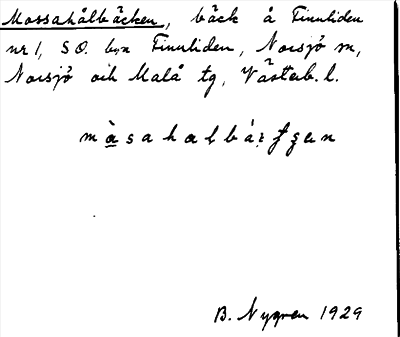 Mossahålbäcken, bäck å Finnliden
nr 1, S.O. byn Finnliden, Norsjö sn,
Norsjö och Malå tg, Västerb. l.
B. Nygren 1929